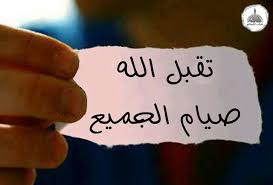 تقبل الله
صيام الجميع